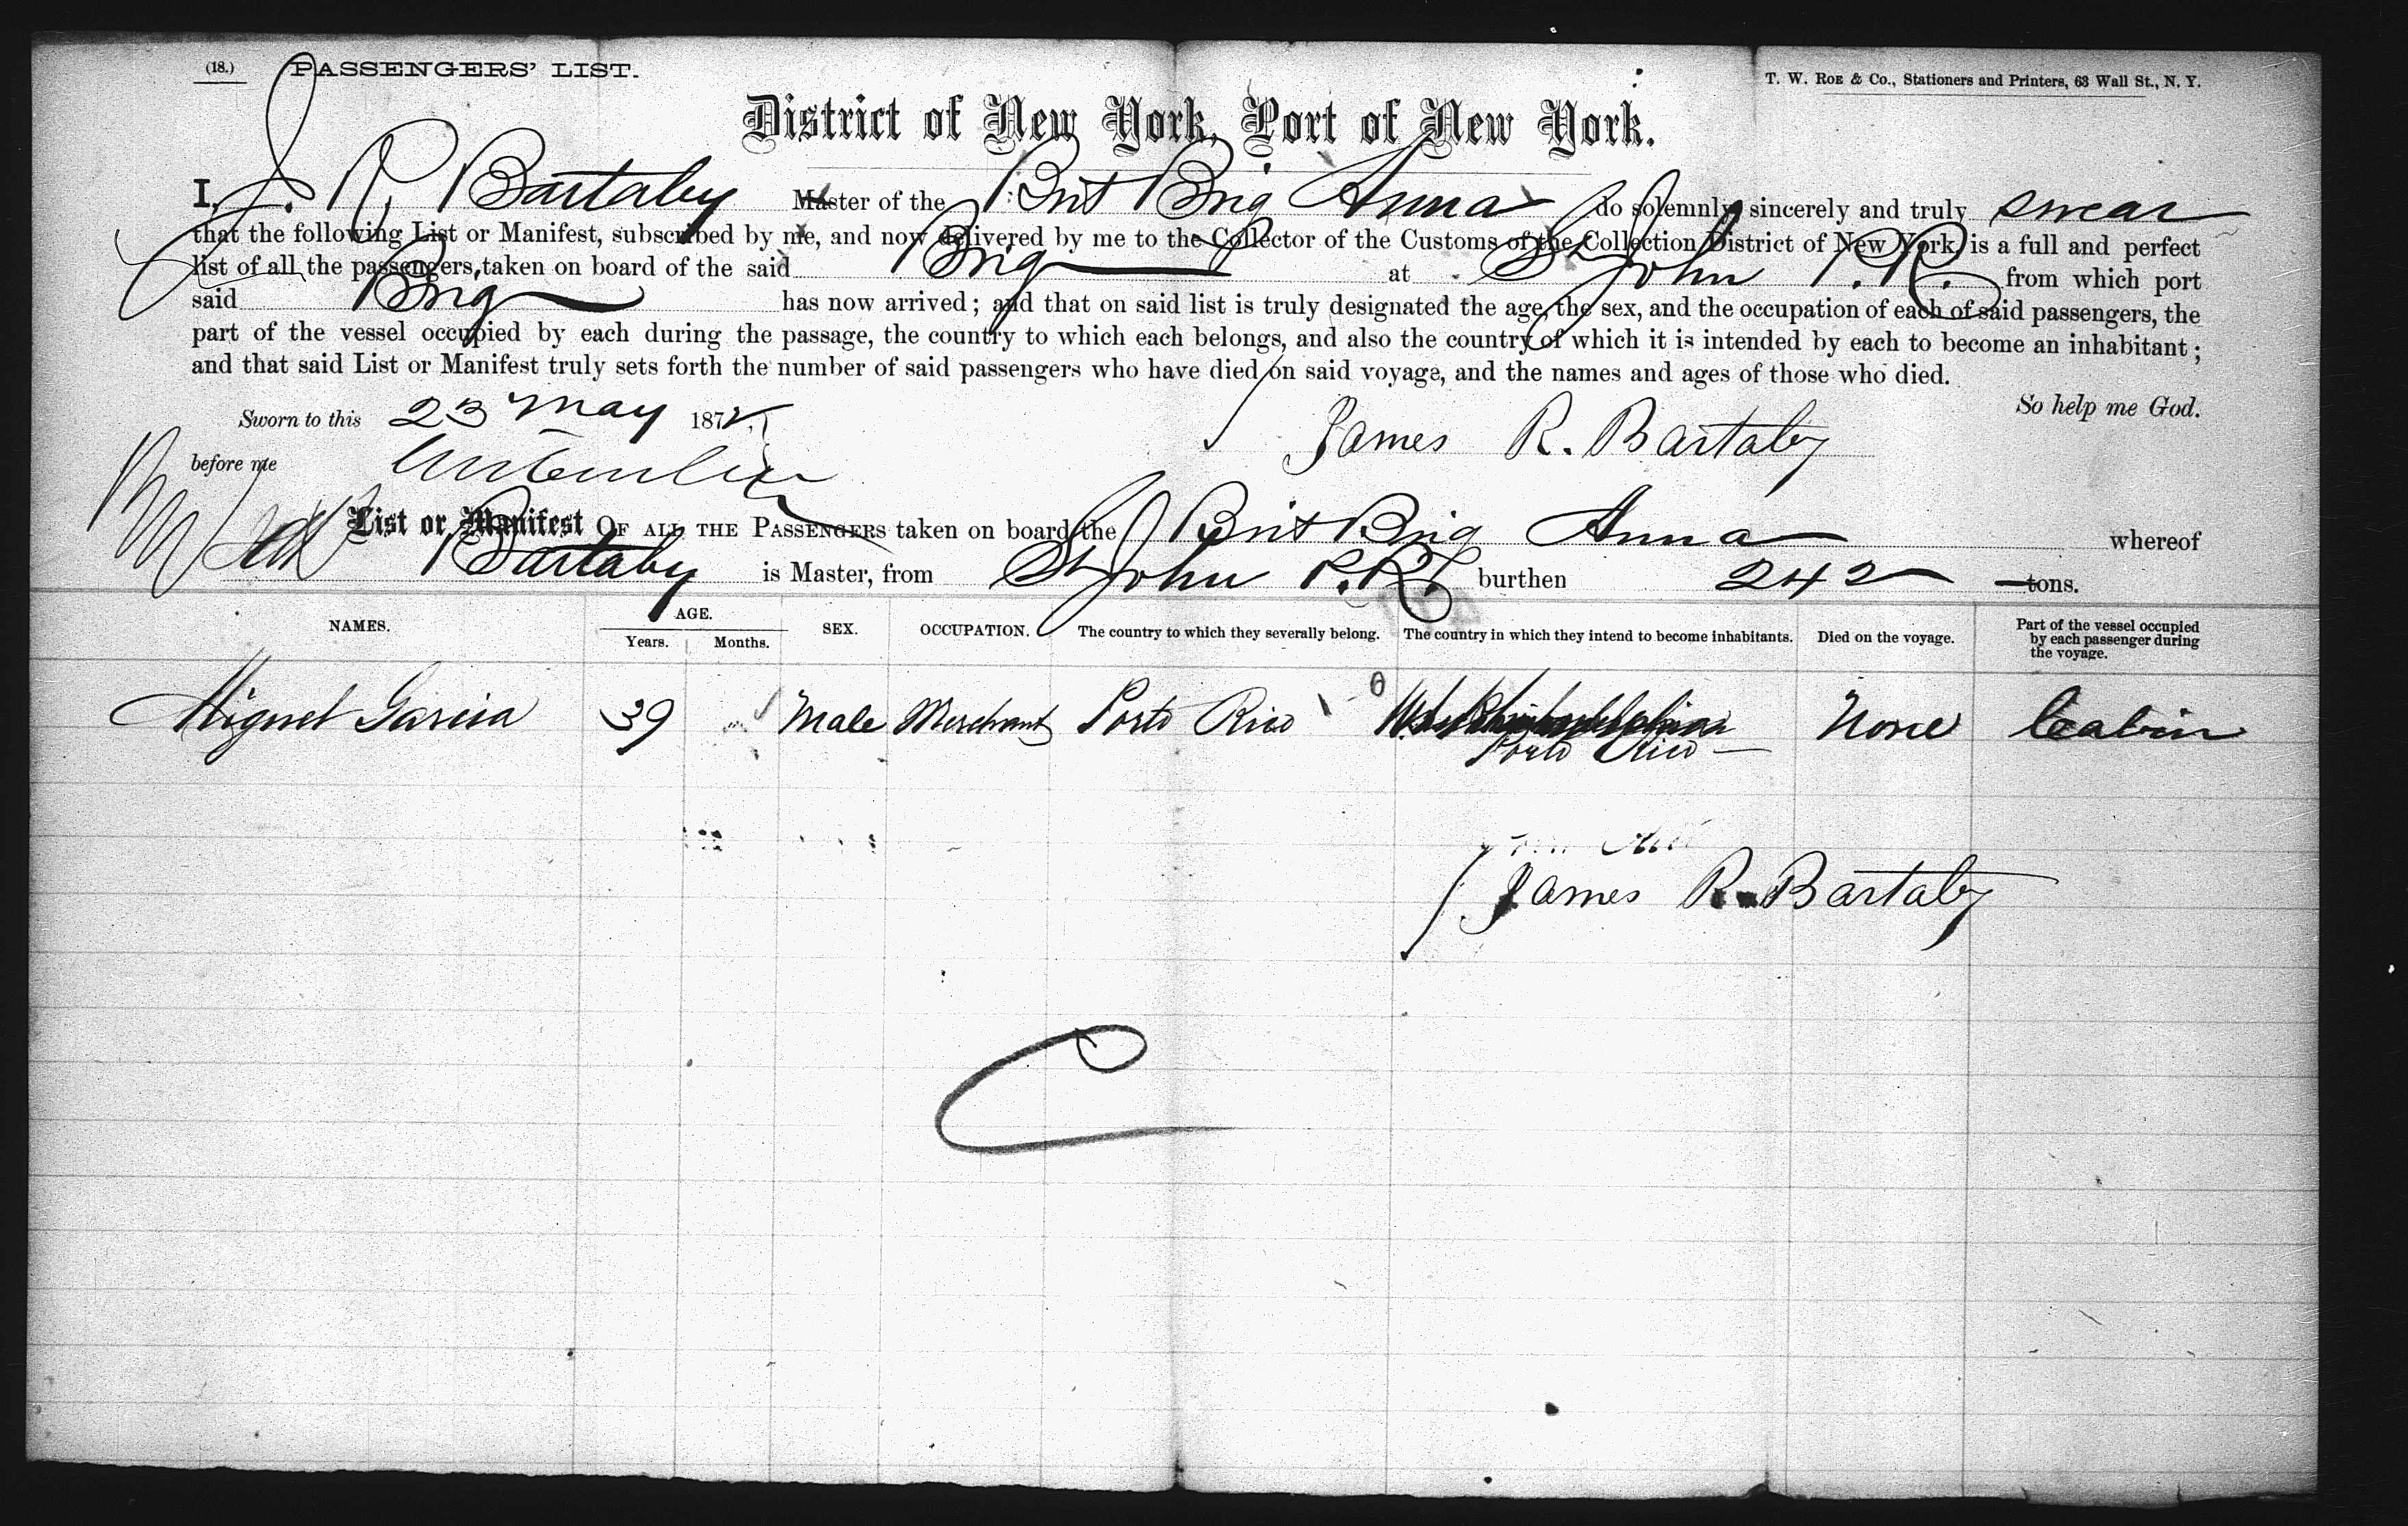 (18.) PASSENGERS' LIST.
T. W. Roe & Co., Stationers and Printers, 63 Wall St., N. Y.
District of New York, Port of New York.
I, J. R. Bartaby Master of the Brit Brig Anna do solemnly, sincerely and truly swear
that the following List or Manifest, subscribed by me, and now delivered by me to the Collector of the Customs of the Collection District of New York, is a full and perfect
list of all the passengers taken on board of the said Brig at St John P.R. from which port
said Brig has now arrived; and that on said list is truly designated the age, the sex, and the occupation of each of said passengers, the
part of the vessel occupied by each during the passage, the country to which each belongs, and also the country of which it is intended by each to become an inhabitant;
and that said List or Manifest truly sets forth the number of said passengers who have died on said voyage, and the names and ages of those who died.
So help me God.
Sworn to this 23 May 1872
James R. Bartaby
before me
List or Manifest OF ALL THE PASSENGERS taken on board the Brit Brig Anna whereof
Bartaby is Master, from St John P.R. burthen 242 tons.
NAMES. AGE. Years. Months. SEX. OCCUPATION. The country to which they severally belong. The country in which they intend to become inhabitants. Died on the voyage. Part of the vessel occupied by each passenger during the voyage.
Miguel Garcia 39 Male Merchant Porto Rico None Cabin
Porto Rico
James R. Bartaby
C